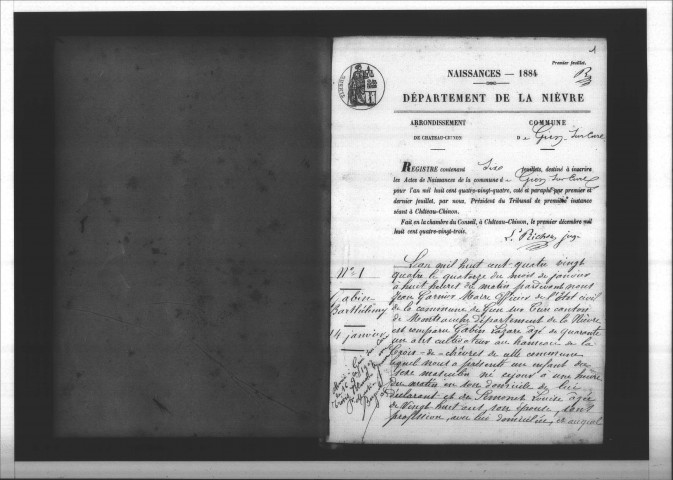 1
Premier feuillet.
NAISSANCES — 1884
DÉPARTEMENT DE LA NIÈVRE
ARRONDISSEMENT
DE CHATEAU-CHINON
COMMUNE
D e Gien-sur-Cure
REGISTRE contenant Six feuillets, destiné à inscrire
les Actes de Naissances de la commune d e Gien-sur-Cure
pour l'an mil huit cent quatre-vingt-quatre, coté et paraphé par premier et
dernier feuillet, par nous, Président du Tribunal de première instance
séant à Château-Chinon.
Fait en la chambre du Conseil, à Château-Chinon, le premier décembre mil
huit cent quatre-vingt-trois.
N° 1
Gabin
Barthélemy
14 janvier
L'an mil huit cent quatre vingt
quatre le quatorze du mois de janvier
à huit heures du matin pardevant nous
Jean Garnier Maire Officier de l'Etat civil
de la commune de Gien sur Cure canton
de Montsauche département de la Nièvre
est comparu Gabin Lazare âgé de quarante
un ans cultivateur au hameau de la
Croix-de-chèvres de cette commune
lequel nous a présenté un enfant du
sexe masculin né ce jour à une heure
du matin en son domicile de lui
déclarant et de Simonet Louise âgée
de vingt huit ans, son épouse, sans
profession, avec lui domiciliée, et auquel